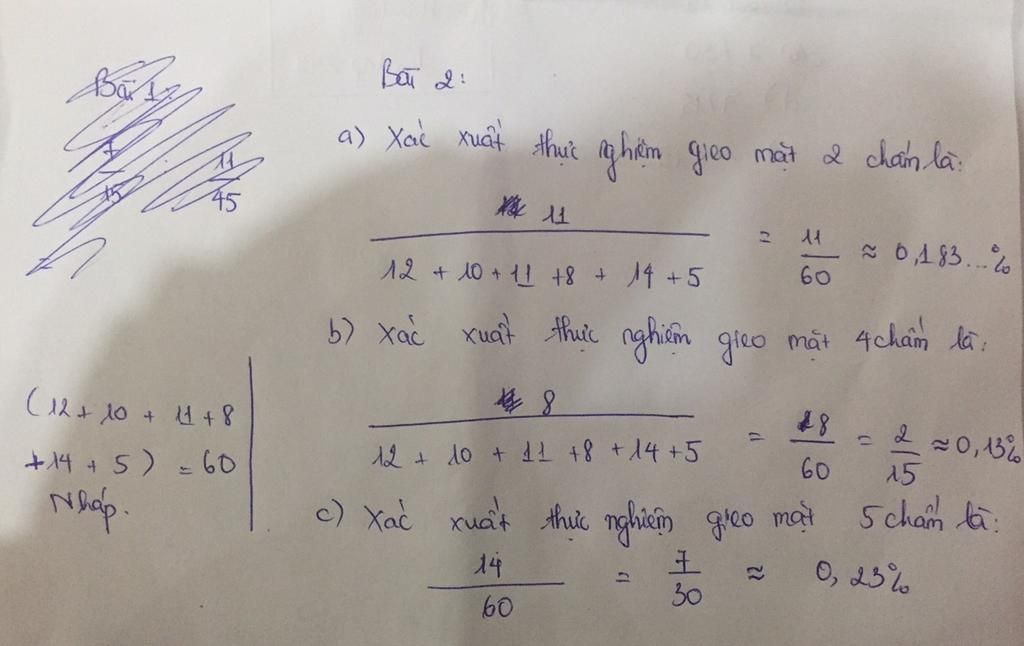 Bài 1:
7
15
11
45
Bài 2:
a) Xác xuất thực nghiệm gieo mặt 2 chấm là:
11
12 + 10 + 11 + 8 + 14 + 5
= 11/60 ≈ 0,183...%
b) Xác xuất thực nghiệm gieo mặt 4 chấm là:
8
12 + 10 + 11 + 8 + 14 + 5
= 8/60 = 2/15 ≈ 0,13%
c) Xác xuất thực nghiệm gieo mặt 5 chấm là:
14/60 = 7/30 ≈ 0,23%
(12 + 10 + 11 + 8
+ 14 + 5) = 60
Nháp.